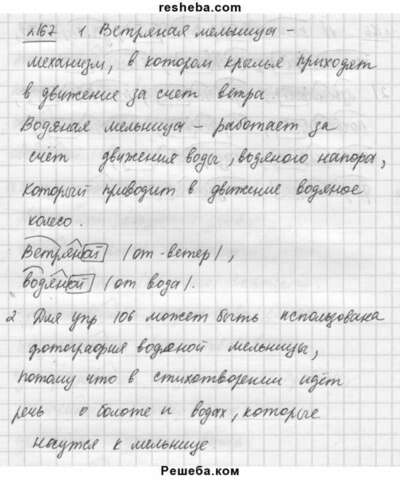 resheba.com
№167 1. Ветряная мельницы –
механизм, в котором крылья приходят
в движение за счет ветра.
Водяная мельницы – работает за
счёт движения воды, водяного напора,
который приводит в движение водяное
колесо.
Ветряной /от - ветер/,
водяной /от вода/.
2 Для упр 106 может быть использована
фотография водяной мельницы,
потому что в стихотворении идёт
речь о болоте и водах, которые
несутся к мельнице
Решеба.ком